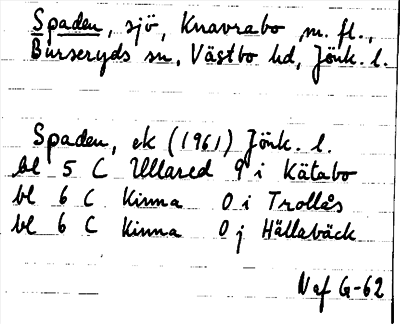 Spaden, sjö, Knavrabo m. fl.,
Burseryds sn, Västbo hd, Jönk. l.
Spaden, ek (1961) Jönk. l.
bl 5 C Ullared 9 i Kätabo
bl 6 C Kinna 0 i Trollås
bl 6 C Kinna 0 j Hällabäck
Naf G-62